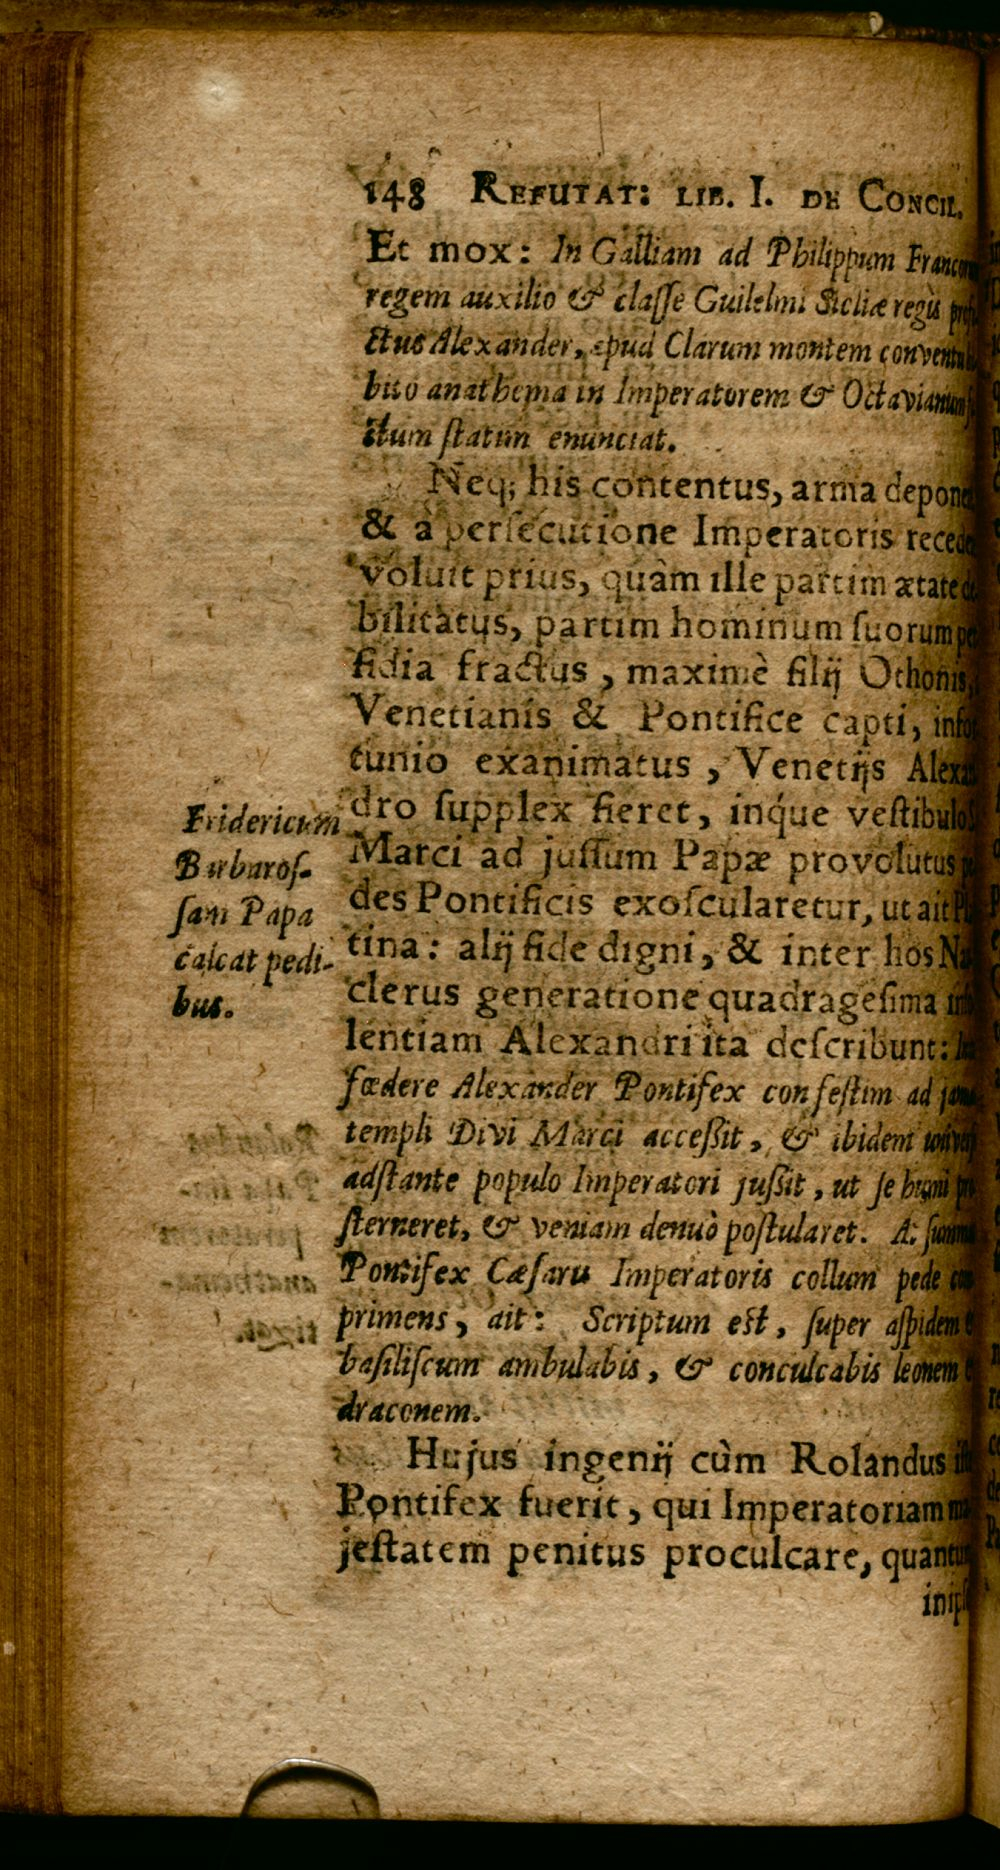 148 REFUTAT: LIB. I. DE CONCIL.
Et mox: In Galliam ad Philippum
regem auxilio & claſſe Guilelmi Siciliæ regis
ctus Alexander, apud Clarum montem
bito anathema in Imperatorem & Octavianum
ctum ſtatim enunciat.
Neq; his contentus, arma
& à perſecutione Imperatoris
voluit prius, quàm ille partim ætate
bilitatus, partim hominum ſuorum
fidia fractus, maximè filij Othonis,
Venetianis & Pontifice capti,
tunio exanimatus, Venetijs
dro ſupplex fieret, inq́ue veſtibulo
Marci ad juſſum Papæ provolutus
des Pontificis exoſcularetur, ut ait
tina: alij fide digni, & inter hos
clerus generatione quadrageſima
lentiam Alexandri ita deſcribunt:
fœdere Alexander Pontifex confeſtim ad
templi Divi Marci acceßit, & ibidem
adſtante populo Imperatori jußit, ut ſe humi
ſterneret, & veniam denuò poſtularet.
Pontifex Cæſaris Imperatoris collum pede
primens, ait: Scriptum eſt, ſuper aſpidem
baſiliſcum ambulabis, & conculcabis leonem
draconem.
Hujus ingenij cùm Rolandus
Pontifex fuerit, qui Imperatoriam
jeſtatem penitus proculcare,
Fridericum
Barbaroſ-
ſam Papa
calcat pedi-
bus.